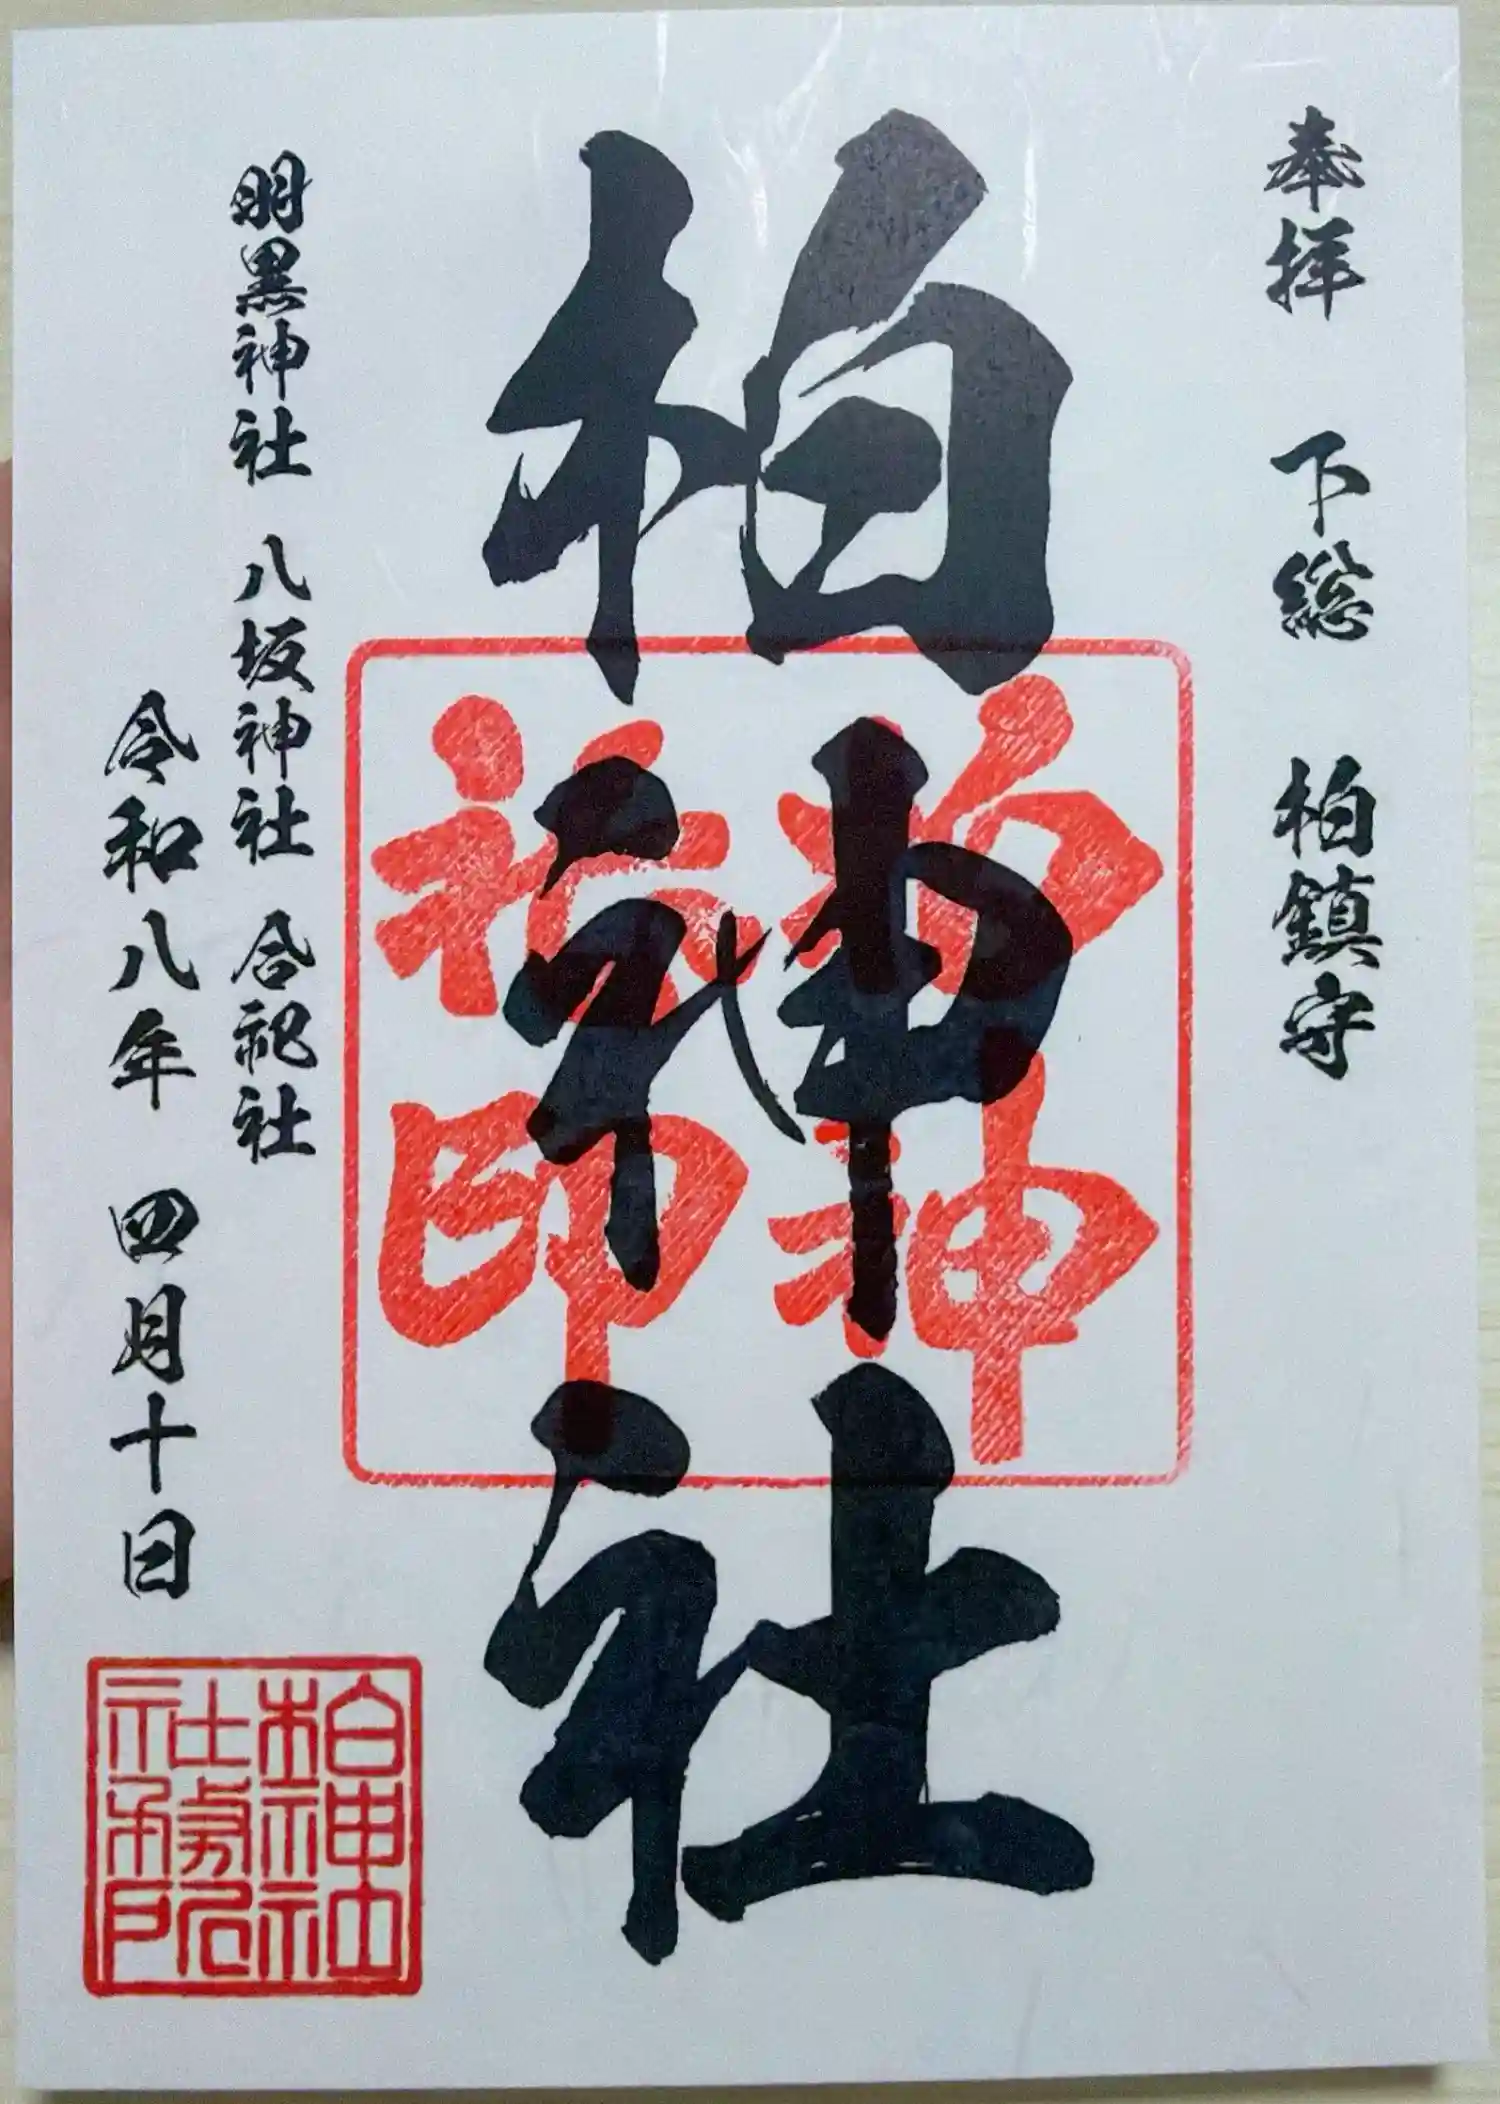 奉拝 下総 柏鎮守
柏神社
柏神社印
羽黒神社 八坂神社 合祀社
令和八年 四月十日
柏神社社務所